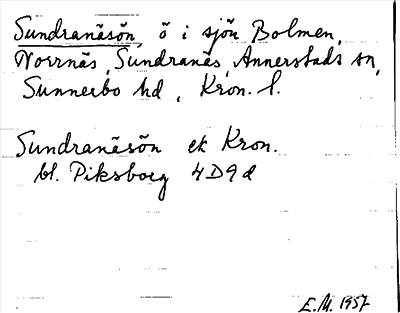 Sundranäsön, ö i sjön Bolmen,
Norrnäs, Sundranäs, Annerstads sn,
Sunnerbo hd, Kron. l.
Sundranäsön ek Kron.
bl. Piksborg 4D9d
E.M. 1957